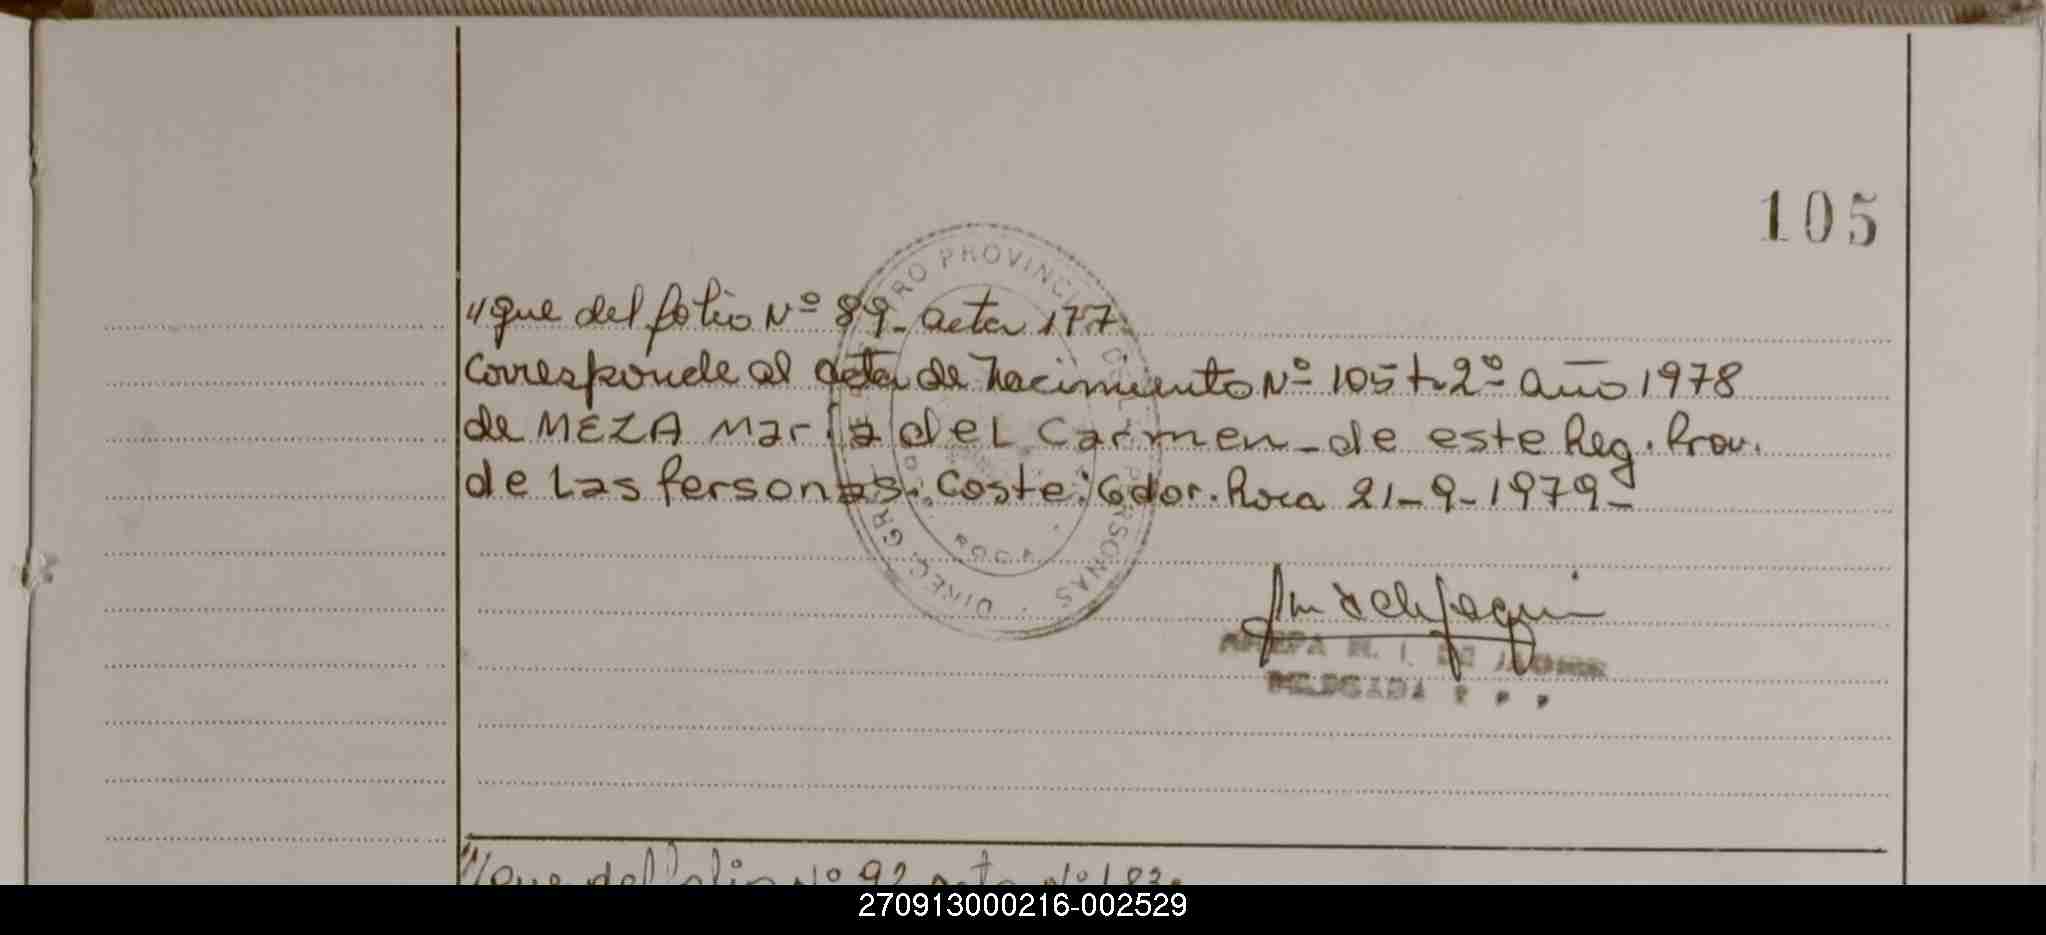 105
"que del folio Nº 89- acta 177.
Corresponde al acta de Nacimiento Nº 105 t-2º año 1978
de MEZA María del Carmen - de este Reg. Prov.
de las Personas. Conste: Gdor. Roca 21-9-1979-
PROVINCI
PERSONAS
DIREC. GR
ROCA
DELEGADA
"que del folio Nº 92 acta Nº 183.
270913000216-002529